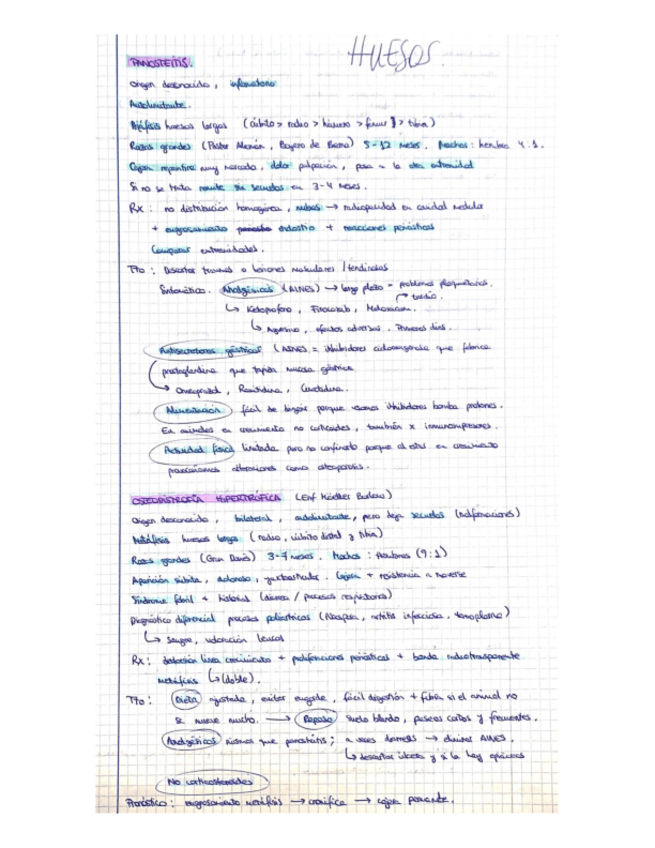 HUESOS.
PANOSTEITIS.
Origen desconocido, inflamatorio
Autolimitante.
Diáfisis huesos largos (cúbito > radio > húmero > fémur > tibia)
Razas grandes (Pastor Alemán, Boyero de Berna) 5-12 meses. Machos: hembras 4:1.
Cojera repentina muy marcada, dolor palpación, pasa a la otra extremidad
Si no se trata remite sin secuelas en 3-4 meses.
Rx: no distribución homogénea, nubes → radiopacidad en cavidad medular
+ engrosamiento endostio + reacciones periósticas
Comparar extremidades.
Tto: Descartar traumas o lesiones musculares / tendinosas
Sintomático. Analgésicos (AINES) → largo plazo = problemas plaquetarios.
↳ Ketoprofeno, Firocoxib, Meloxicam.
↳ efectos adversos. Primeros días.
Antisecretores gástricos (AINES = inhibidores ciclooxigenasa que fabrica
prostaglandina que tapiza mucosa gástrica
→ Omeprazol, Ranitidina, Cimetidina.
Alimentación fácil de digerir porque usamos inhibidores bomba protones.
En animales en crecimiento no corticoides, también x inmunosupresores.
Actividad física limitada pero no confinarlo porque al estar en crecimiento
provocaríamos alteraciones como osteoporosis.
OSTEODISTROFIA HIPERTRÓFICA (Enf Moeller Barlow)
Origen desconocido, bilateral, autolimitante, pero deja secuelas (malformaciones)
Metáfisis huesos largos (radio, cúbito distal y tibia)
Razas grandes (Gran Danés) 3-7 meses. Machos: Hembras (9:1)
Aparición súbita, doloroso, yuxtaarticular. Cojera + resistencia a moverse
Síndrome febril + historial (diarrea / procesos respiratorios)
Diagnóstico diferencial procesos poliartríticos (Neospora, artritis infecciosa, )
↳ Sangre, valoración leucos
Rx: línea crecimiento + proliferaciones periósticas + banda radiotransparente
metáfisis ↳ (doble).
Tto: Dieta ajustada, evitar engorde, fácil digestión + fibra si el animal no
se mueve mucho. → Reposo suelo blando, paseos cortos y frecuentes.
Analgésicos mismos que panosteitis; a veces → AINES.
↳ descartar úlcera y si la hay opiáceos
No corticosteroides
Pronóstico: engrosamiento metáfisis → cronifica → cojera permanente.